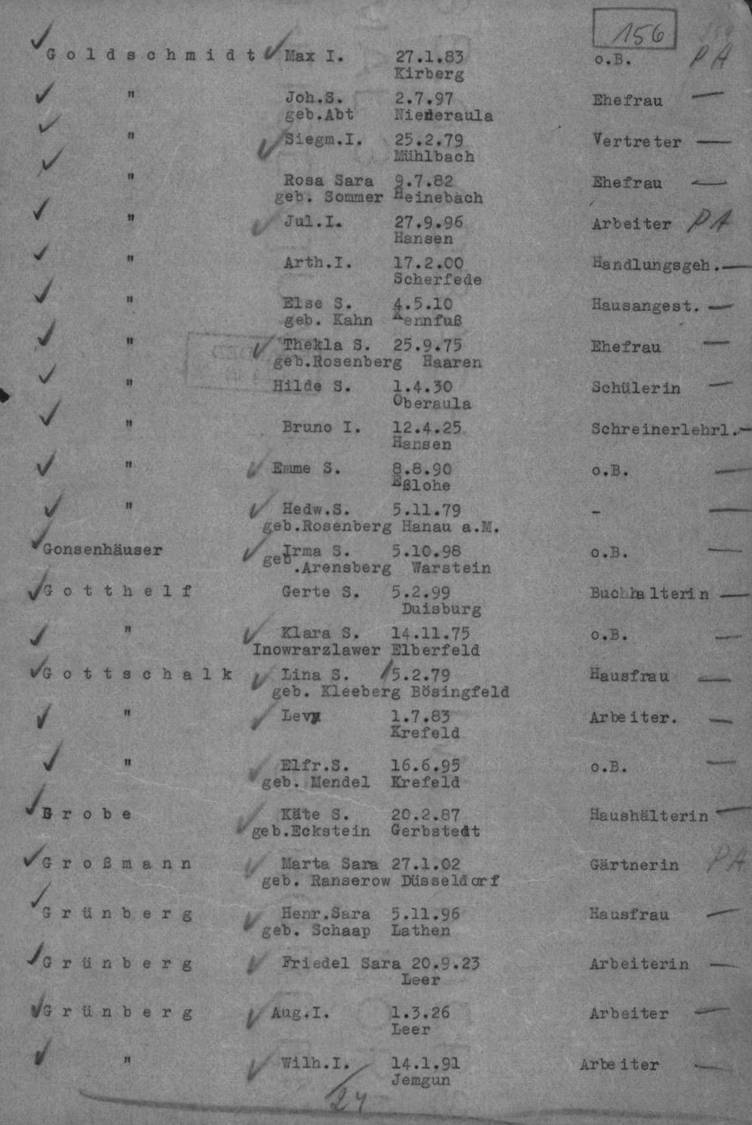 156
Goldschmidt Max I. 27.1.83 o.B. PA
Kirberg
" Joh.S. 2.7.97 Ehefrau —
geb.Abt Niederaula
" Siegm.I. 25.2.79 Vertreter —
Mühlbach
" Rosa Sara 9.7.82 Ehefrau —
geb. Sommer Heinebach
" Jul.I. 27.9.96 Arbeiter PA
Hansen
" Arth.I. 17.2.00 Handlungsgeh. —
Scherfede
" Else S. 4.5.10 Hausangest. —
geb. Kahn Kennfuß
" Thekla S. 25.9.75 Ehefrau —
geb.Rosenberg Haaren
" Hilde S. 1.4.30 Schülerin —
Oberaula
" Bruno I. 12.4.25 Schreinerlehrl. —
Hansen
" Emme S. 8.8.90 o.B. —
Eßlohe
" Hedw.S. 5.11.79 - —
geb.Rosenberg Hanau a.M.
Gonsenhäuser Irma S. 5.10.98 o.B. —
geb.Arensberg Warstein
Gotthelf Gerte S. 5.2.99 Buchhalterin —
Duisburg
" Klara S. 14.11.75 o.B. —
Inowrarzlawer Elberfeld
Gottschalk Lina S. 15.2.79 Hausfrau —
geb. Kleeberg Bösingfeld
" Levy 1.7.83 Arbeiter. —
Krefeld
" Elfr.S. 16.6.95 o.B. —
geb. Mendel Krefeld
Grobe Käte S. 20.2.87 Haushälterin —
geb.Eckstein Gerbstedt
Großmann Marta Sara 27.1.02 Gärtnerin PA
geb. Ranserow Düsseldorf
Grünberg Henr.Sara 5.11.96 Hausfrau —
geb. Schaap Lathen
Grünberg Friedel Sara 20.9.23 Arbeiterin —
Leer
Grünberg Aug.I. 1.3.26 Arbeiter —
Leer
" Wilh.I. 14.1.91 Arbeiter —
Jemgun
24